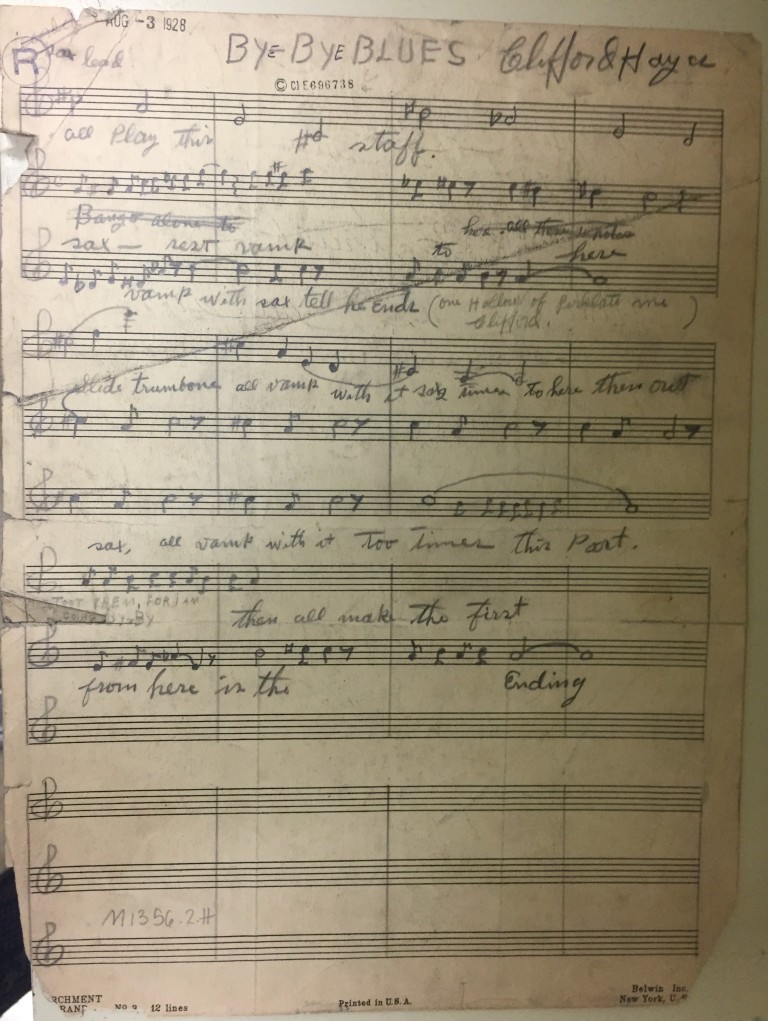 AUG -3 1928
R sax lead BYE-BYE BLUES Clifford Hayes
© CIE696738
all Play this staff.
Bango alone to
hox all there is notes
sax — rest vamp to here
vamp with sax tell he ends (one Hollow of me Clifford. )
slide trumbone all vamp with it sax times to here then out
sax, all vamp with it Too Times this Part.
TOOT THEM, FOR I AM
GOING BY-BY
then all make the first
from here is the Ending
M1356.2.H
RCHMENT
RAND No 9 12 lines
Printed in U.S.A.
Belwin Inc.
New York, U.S